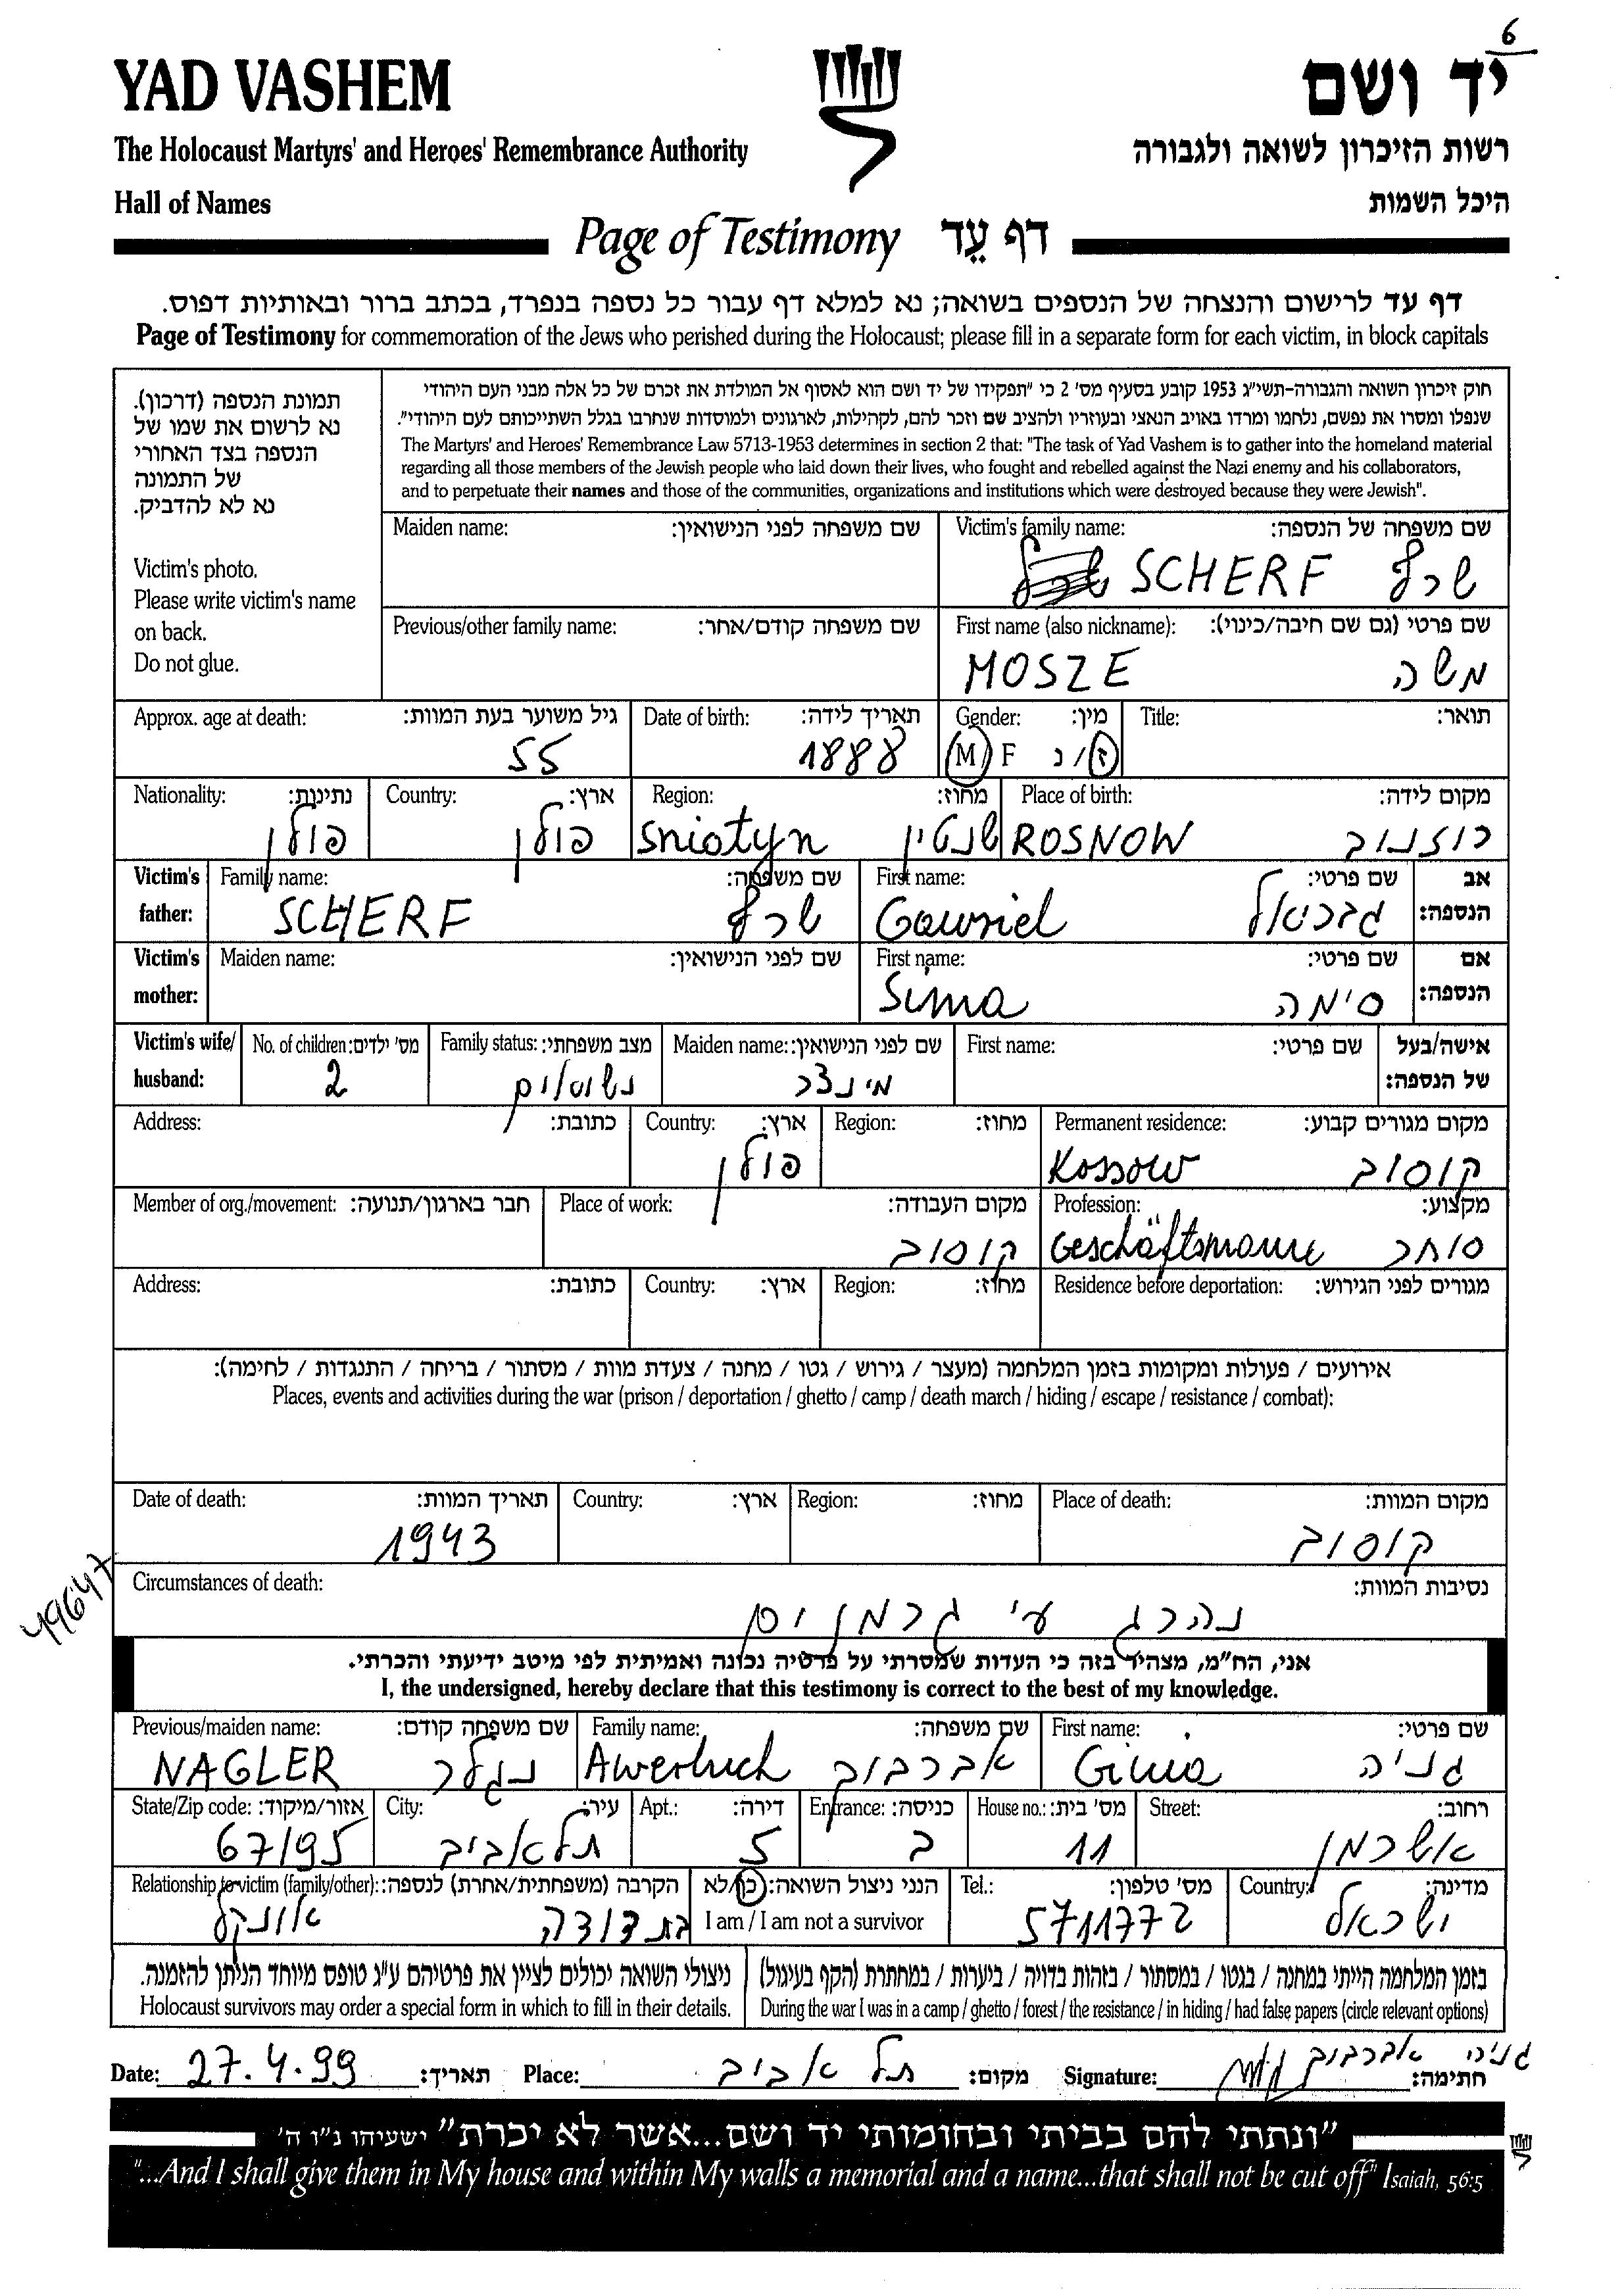 6
YAD VASHEM יד ושם
The Holocaust Martyrs' and Heroes' Remembrance Authority רשות הזיכרון לשואה ולגבורה
Hall of Names היכל השמות
Page of Testimony דף עֵד
דף עד לרישום והנצחה של הנספים בשואה; נא למלא דף עבור כל נספה בנפרד, בכתב ברור ובאותיות דפוס.
Page of Testimony for commemoration of the Jews who perished during the Holocaust; please fill in a separate form for each victim, in block capitals
תמונת הנספה (דרכון).
נא לרשום את שמו של
הנספה בצד האחורי
של התמונה
נא לא להדביק.
Victim's photo.
Please write victim's name
on back.
Do not glue.
חוק זיכרון השואה והגבורה-תשי"ג 1953 קובע בסעיף מס' 2 כי "תפקידו של יד ושם הוא לאסוף אל המולדת את זכרם של כל אלה מבני העם היהודי
שנפלו ומסרו את נפשם, נלחמו ומרדו באויב הנאצי ובעוזריו ולהציב שם וזכר להם, לקהילות, לארגונים ולמוסדות שנחרבו בגלל השתייכותם לעם היהודי".
The Martyrs' and Heroes' Remembrance Law 5713-1953 determines in section 2 that: "The task of Yad Vashem is to gather into the homeland material
regarding all those members of the Jewish people who laid down their lives, who fought and rebelled against the Nazi enemy and his collaborators,
and to perpetuate their names and those of the communities, organizations and institutions which were destroyed because they were Jewish".
Maiden name: שם משפחה לפני הנישואין: Victim's family name: שם משפחה של הנספה:
SCHERF שרף
Previous/other family name: שם משפחה קודם/אחר: First name (also nickname): שם פרטי (גם שם חיבה/כינוי):
MOSZE משה
Approx. age at death: גיל משוער בעת המוות: Date of birth: תאריך לידה: Gender: מין: Title: תואר:
55 1888 M/F ז/נ
Nationality: נתינות: Country: ארץ: Region: מחוז: Place of birth: מקום לידה:
פולן פולן Sniatyn שנטין ROSNOW רוזנוב
Victim's father: Family name: שם משפחה: First name: שם פרטי: אב הנספה:
SCHERF שרף Gawriel גבריאל
Victim's mother: Maiden name: שם לפני הנישואין: First name: שם פרטי: אם הנספה:
Sima סימה
Victim's wife/husband: No. of children: מס' ילדים: Family status: מצב משפחתי: Maiden name: שם לפני הנישואין: First name: שם פרטי: אישה/בעל של הנספה:
2 מינצר
Address: כתובת: Country: ארץ: Region: מחוז: Permanent residence: מקום מגורים קבוע:
פולן Kossow קוסוב
Member of org./movement: חבר בארגון/תנועה: Place of work: מקום העבודה: Profession: מקצוע:
קוסוב Geschäftsmann סוחר
Address: כתובת: Country: ארץ: Region: מחוז: Residence before deportation: מגורים לפני הגירוש:
אירועים / פעולות ומקומות בזמן המלחמה (מעצר / גירוש / גטו / מחנה / צעדת מוות / מסתור / בריחה / התנגדות / לחימה):
Places, events and activities during the war (prison / deportation / ghetto / camp / death march / hiding / escape / resistance / combat):
Date of death: תאריך המוות: Country: ארץ: Region: מחוז: Place of death: מקום המוות:
1943 קוסוב
49647
Circumstances of death: נסיבות המוות:
נהרג ע'י גרמנים
אני, הח"מ, מצהיר בזה כי העדות שמסרתי על פרטיה נכונה ואמיתית לפי מיטב ידיעתי והכרתי.
I, the undersigned, hereby declare that this testimony is correct to the best of my knowledge.
Previous/maiden name: שם משפחה קודם: Family name: שם משפחה: First name: שם פרטי:
NAGLER נגלר Awerbuch אברבוך Ginia גניה
State/Zip code: אזור/מיקוד: City: עיר: Apt.: דירה: Entrance: כניסה: House no.: מס' בית: Street: רחוב:
67195 תל אביב 5 ב 11 אשרמן
Relationship to victim (family/other): הקרבה (משפחתית/אחרת) לנספה: הנני ניצול השואה: כן/לא Tel.: מס' טלפון: Country: מדינה:
אונקל בת דודה I am / I am not a survivor 5711772 ישראל
ניצולי השואה יכולים לציין את פרטיהם ע"ג טופס מיוחד הניתן להזמנה. בזמן המלחמה הייתי במחנה / בגטו / במסתור / בזהות בדויה / ביערות / במחתרת (הקף בעיגול)
Holocaust survivors may order a special form in which to fill in their details. During the war I was in a camp / ghetto / forest / the resistance / in hiding / had false papers (circle relevant options)
Date: 27.4.99 תאריך: Place: תל אביב מקום: Signature: גניה אברבוך חתימה:
"ונתתי להם בביתי ובחומותי יד ושם...אשר לא יכרת" ישעיהו נ"ו ה'
"...And I shall give them in My house and within My walls a memorial and a name...that shall not be cut off" Isaiah, 56:5